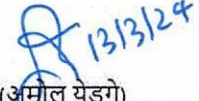 13/3/24
(अमोल येडगे)